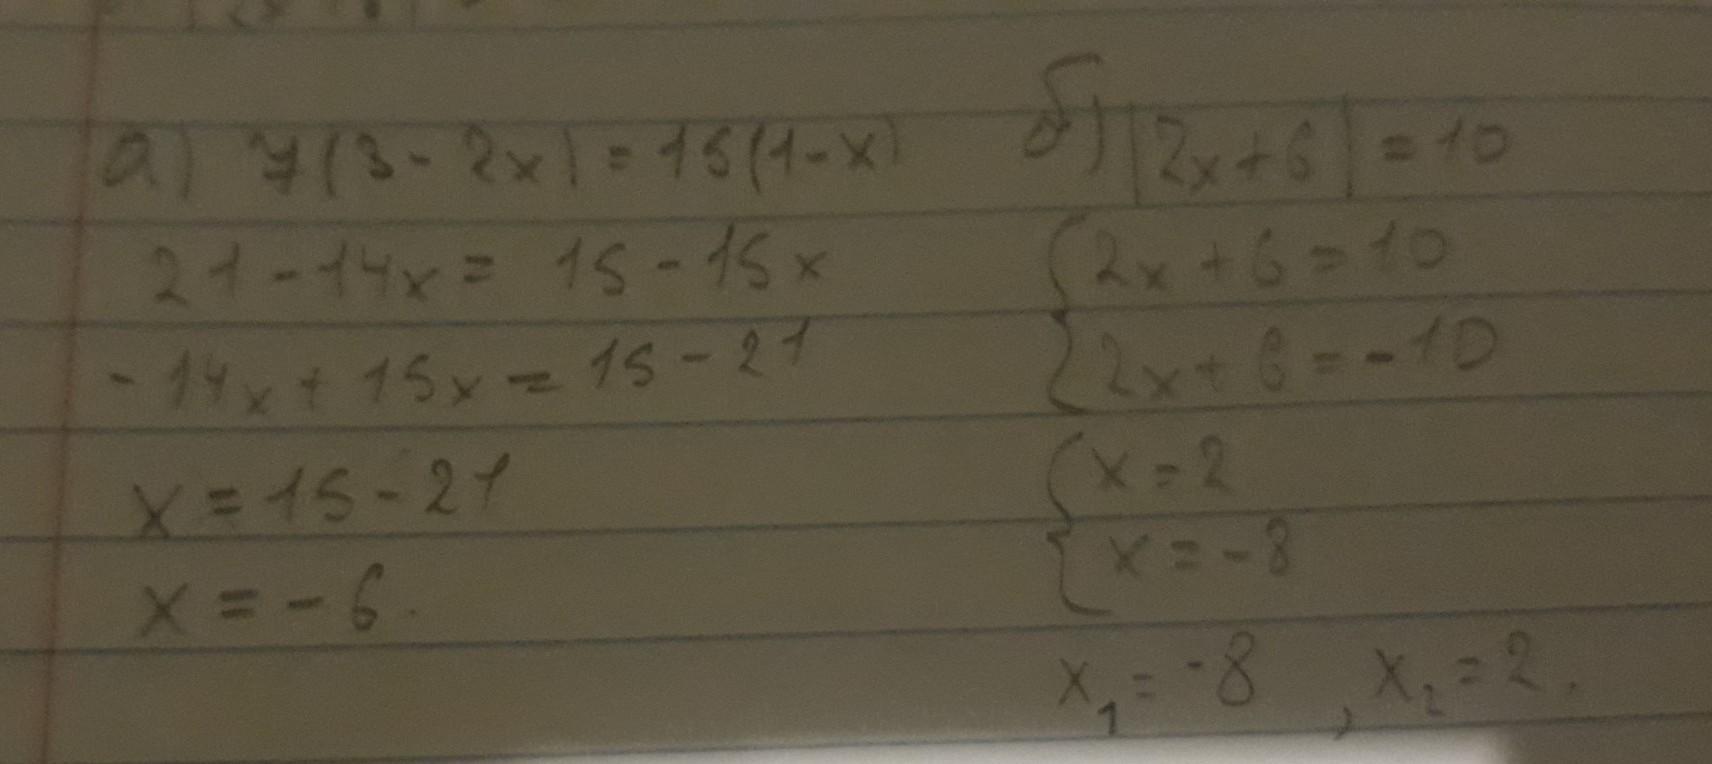 а) 7(3 - 2x) = 15(1 - x)
21 - 14x = 15 - 15x
- 14x + 15x = 15 - 21
x = 15 - 21
x = - 6.
б) |2x + 6| = 10
{2x + 6 = 10
2x + 6 = - 10
{x = 2
x = - 8
x₁ = -8 , x₂ = 2.